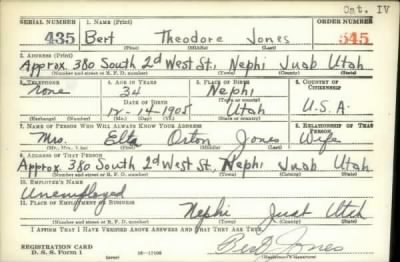 Cat. IV
SERIAL NUMBER 1. NAME (Print) ORDER NUMBER
435 Bert Theodore Jones 545
(First) (Middle) (Last)
2. ADDRESS (Print)
Approx. 380 South 2d West St., Nephi Juab Utah
(Number and street or R. F. D. number) (Town) (County) (State)
3. TELEPHONE 4. AGE IN YEARS 5. PLACE OF BIRTH 6. COUNTRY OF CITIZENSHIP
None 34 Nephi
DATE OF BIRTH (Town or county)
12-14-1905 Utah U.S.A.
(Exchange) (Number) (Mo.) (Day) (Yr.) (State or country)
7. NAME OF PERSON WHO WILL ALWAYS KNOW YOUR ADDRESS 8. RELATIONSHIP OF THAT PERSON
Mrs. Ella Orton Jones Wife
(Mr., Mrs., Miss) (First) (Middle) (Last)
9. ADDRESS OF THAT PERSON
Approx 380 South 2d West St, Nephi Juab Utah
(Number and street or R. F. D. number) (Town) (County) (State)
10. EMPLOYER'S NAME
Unemployed
11. PLACE OF EMPLOYMENT OR BUSINESS
Nephi Juab Utah
(Number and street or R. F. D. number) (Town) (County) (State)
I AFFIRM THAT I HAVE VERIFIED ABOVE ANSWERS AND THAT THEY ARE TRUE.
REGISTRATION CARD
D. S. S. Form 1 16-17105 Bert Jones
(Registrant's signature)